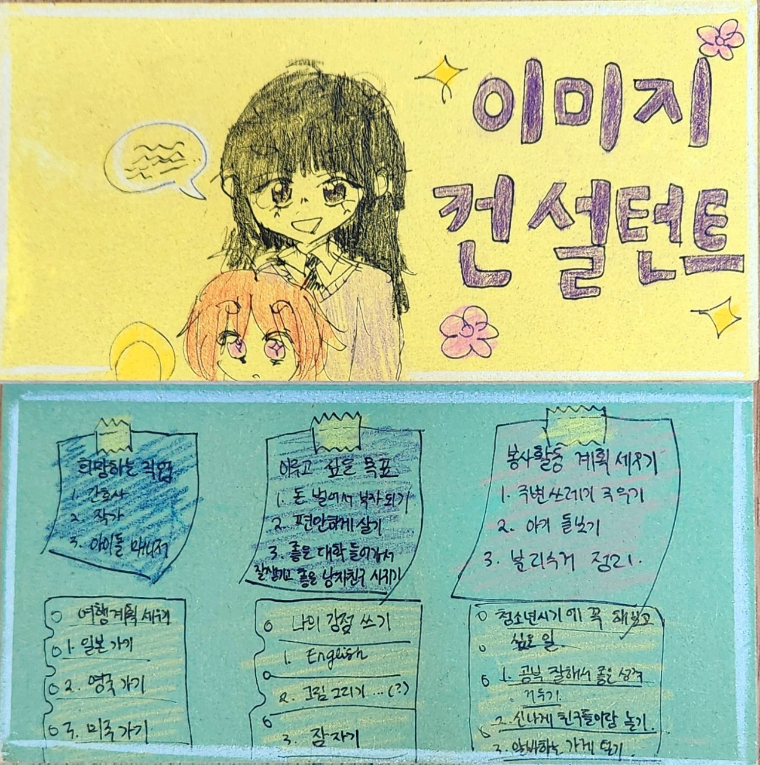 이미지
컨설턴트
희망하는 직업
1. 간호사
2. 작가
3. 아이돌 매니저
이루고 싶은 목표
1. 돈 벌어서 부자되기
2. 편안하게 살기
3. 좋은 대학 들어가서
잘생기고 좋은 남자친구 사귀기
봉사활동 계획 세우기
1. 주변 쓰레기 줍기
2. 아기 돌보기
3. 분리수거 정리.
여행계획 세우기
1. 일본 가기
2. 영국 가기
3. 미국 가기
나의 강점 쓰기
1. English
2. 그림 그리기 ...(?)
3. 잠자기
청소년시기에 꼭 해보고
싶은 일.
1. 공부 잘해서 좋은 성적
거두기
2. 신나게 친구들이랑 놀기.
3. 알바하는 가게